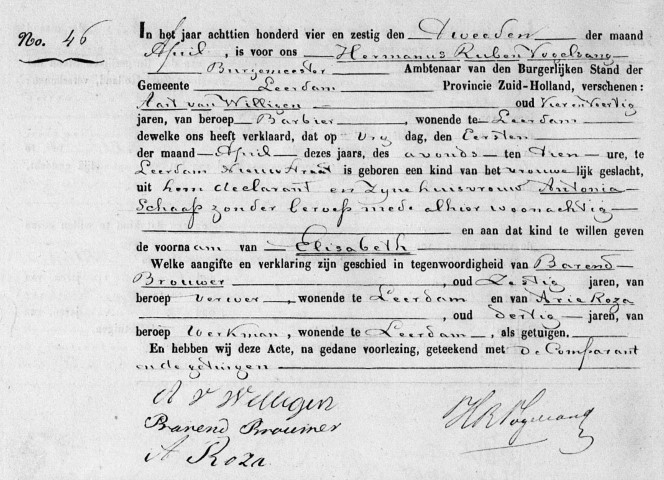 No. 46
In het jaar achttien honderd vier en zestig den Tweeden der maand
April, is voor ons Hermanus Ruben Vogelzang
Burgemeester Ambtenaar van den Burgerlijken Stand der
Gemeente Leerdam Provincie Zuid-Holland, verschenen:
Aart van Willigen oud Vier en Veertig
jaren, van beroep Barbier, wonende te Leerdam
dewelke ons heeft verklaard, dat op Vry dag, den Eersten
der maand April dezes jaars, des avonds ten tien ure, te
Leerdam Nieuwstraat is geboren een kind van het vrouwelijk geslacht,
uit hem declarant en Zyne huisvrouw Antonia
Schaap zonder beroep mede alhier woonachtig
en aan dat kind te willen geven
de voornaam van Elisabeth
Welke aangifte en verklaring zijn geschied in tegenwoordigheid van Barend
Brouwer, oud Zestig jaren, van
beroep Verwer, wonende te Leerdam en van Arie Roza
, oud Dertig jaren, van
beroep Werkman, wonende te Leerdam, als getuigen,
En hebben wij deze Acte, na gedane voorlezing, geteekend met de Comparant
en de getuigen
A v Willigen
Barend Brouwer
HRVogelzang
A Roza